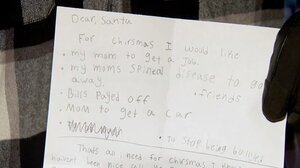 Dear, Santa
For chirsmas I would like
• my mom to get a Job.
• my moms spineal disease to go
away.
• friends
• Bills Payed off
• Mom to get a car
• To Stop being bullied
Thats all i need for chirsmas I
havent been nice all